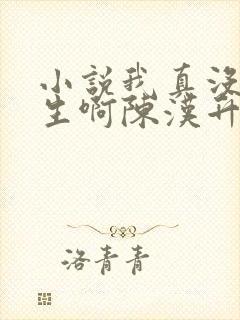 小說我真沒
生啊陳漢升
洛青青